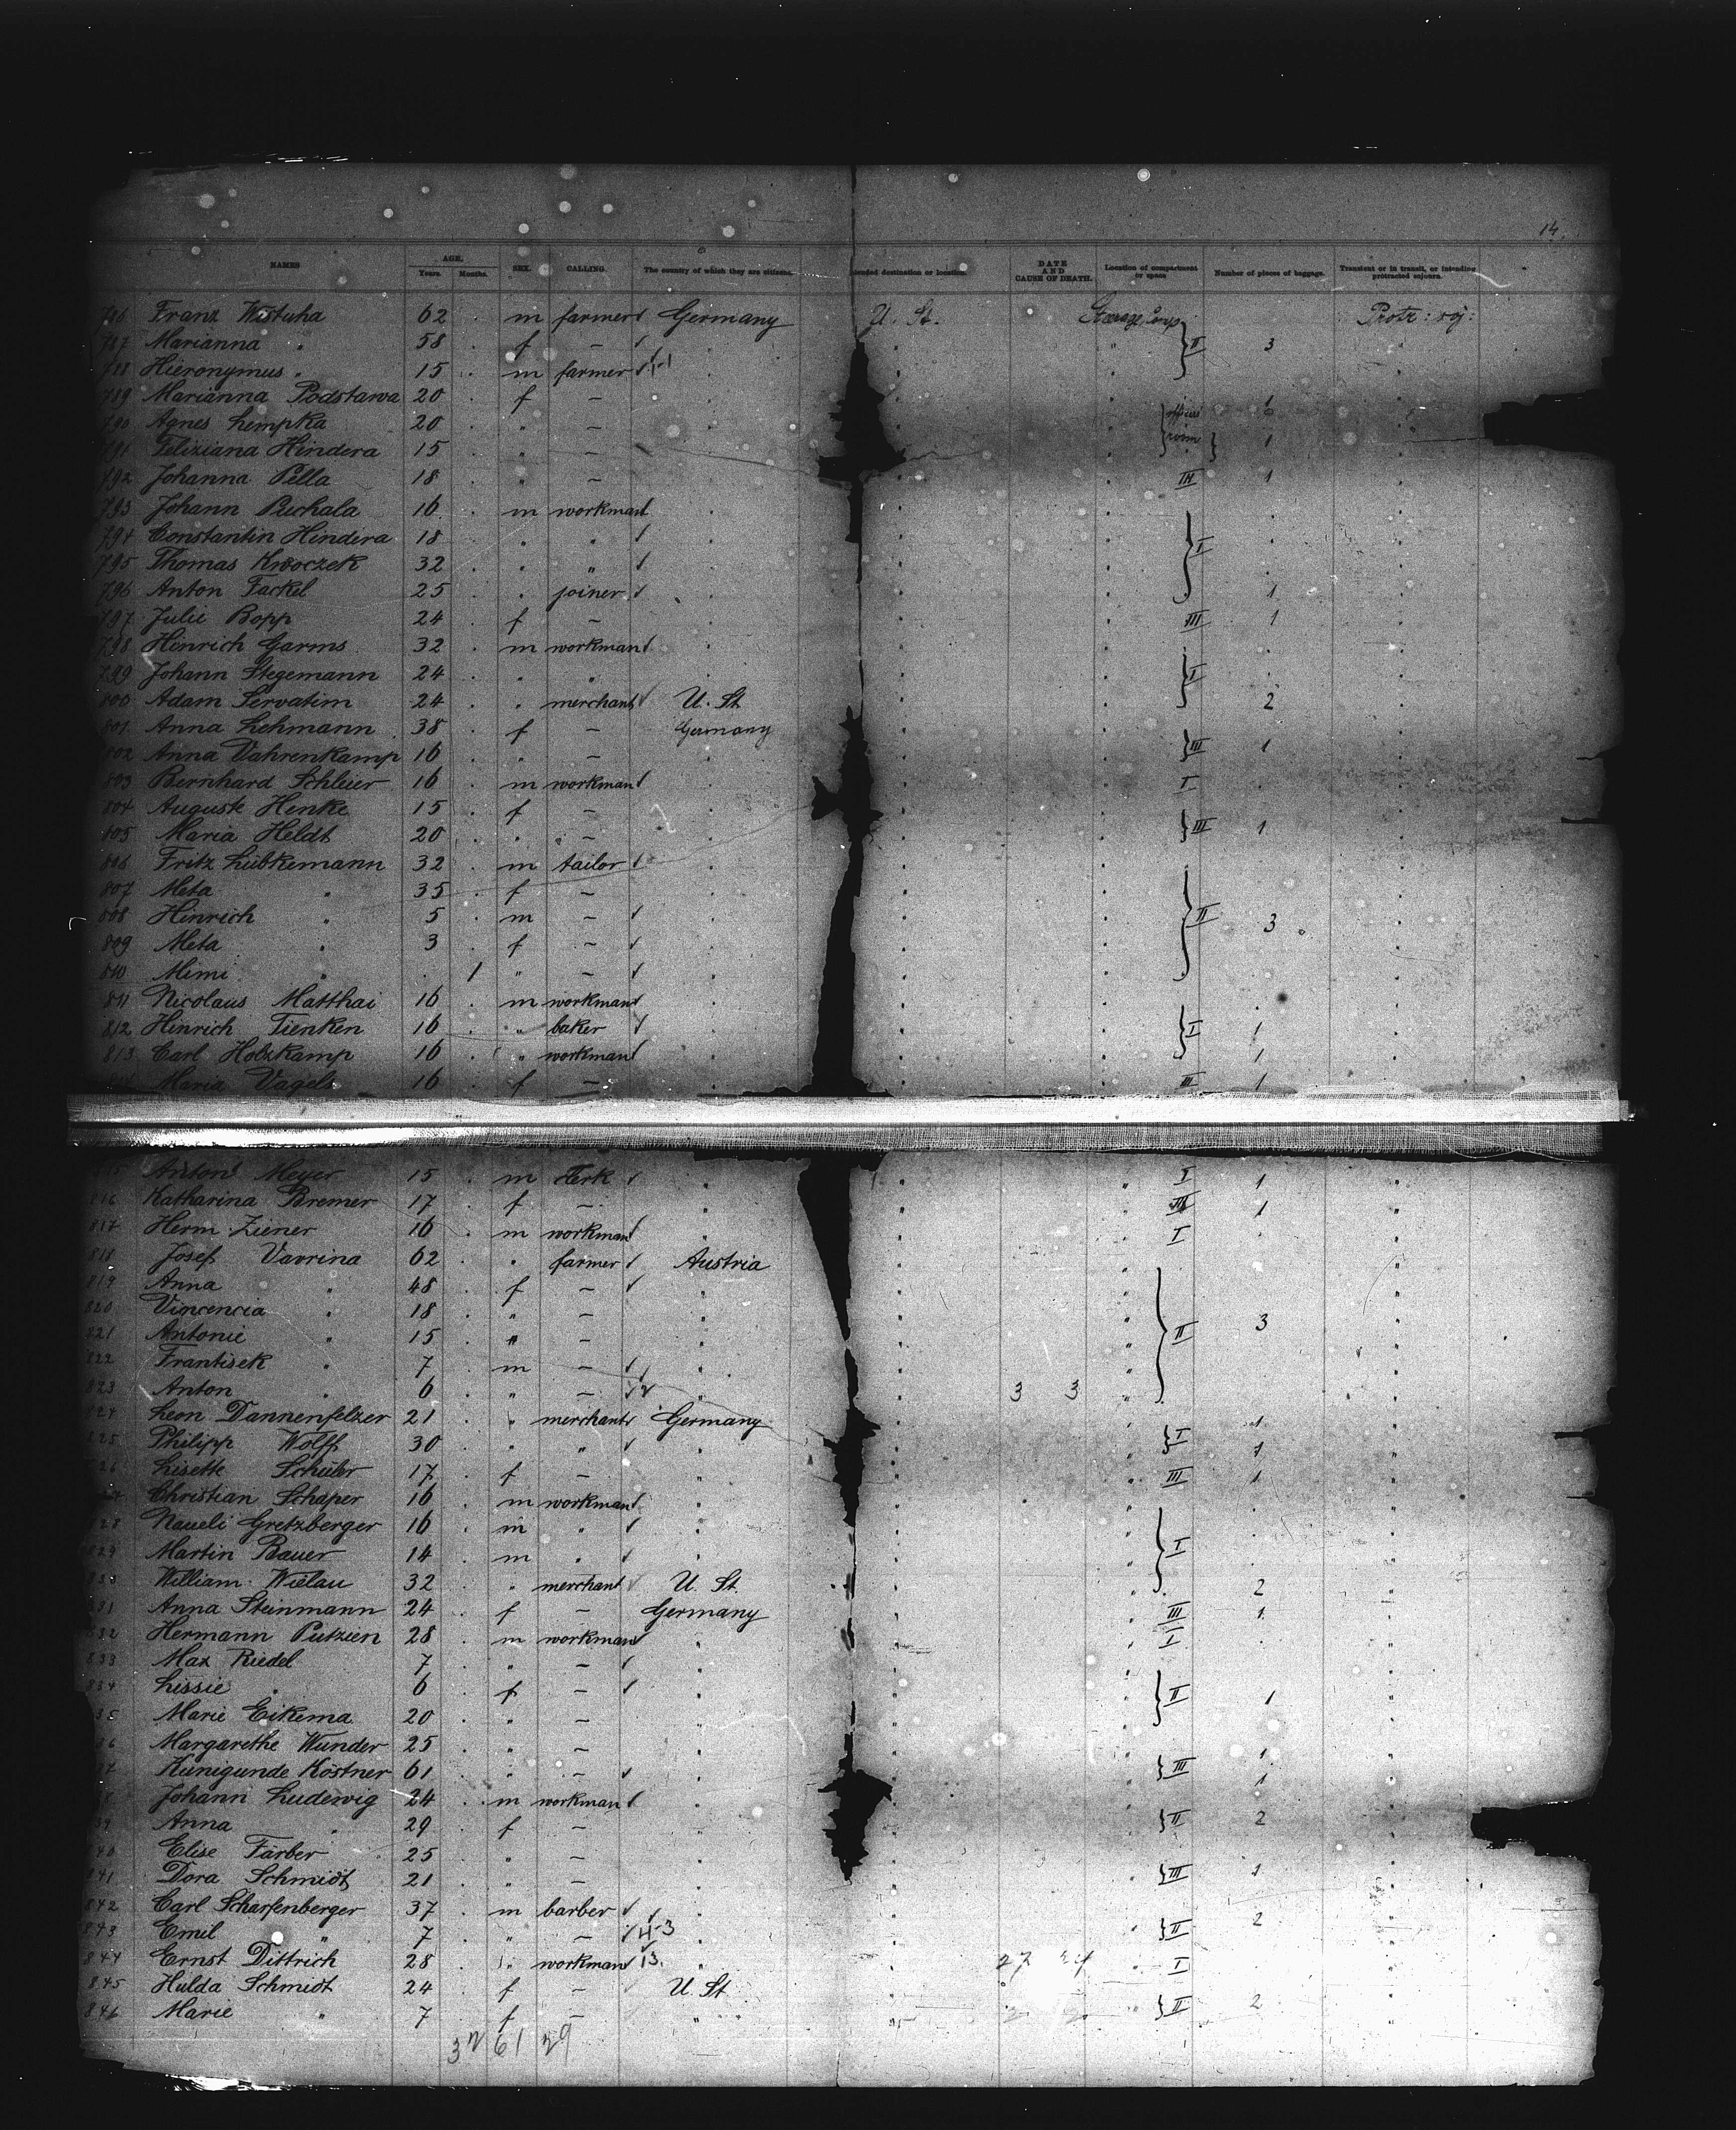 14.
NAMES AGE. Years. Months. SEX. CALLING. The country of which they are citizens. Intended destination or location. DATE AND CAUSE OF DEATH. Location of compartment or space Number of pieces of baggage. Transient or in transit, or intending protracted sojourn.
786 Franz Wistuha 62 m farmer Germany U. St. Steerage Comp Protr: soj:
787 Marianna " 58 f — II 3
788 Hieronymus " 15 m farmer
789 Marianna Podstawa 20 f — 1
790 Agnes Lempka 20 " —
791 Feliziana Hindera 15 " — 1
792 Johanna Pella 18 " — III 1
793 Johann Puchala 16 m workman
794 Constantin Hindera 18 " " I
795 Thomas Kroczek 32 " "
796 Anton Fackel 25 " joiner 1
797 Julie Bopp 24 f — III 1
798 Hinrich Garms 32 m workman
799 Johann Stegemann 24 " " I
800 Adam Servatim 24 " merchant U. St. 2
801 Anna Lehmann 38 f — Germany
802 Anna Vahrenkamp 16 " — III 1
803 Bernhard Schleier 16 m workman I
804 Auguste Henke 15 f —
805 Maria Heldt 20 " — III 1
806 Fritz Lübkemann 32 m tailor
807 Meta " 35 f —
808 Hinrich " 5 m — II 3
809 Meta " 3 f —
810 Mimi " 1 " —
811 Nicolaus Matthai 16 m workman
812 Hinrich Tienken 16 " baker I 1
813 Carl Holzkamp 16 " workman 1
Maria Vagels 16 f — III 1
Anton Meyer 15 m clerk I 1
816 Katharina Bremer 17 f — III 1
817 Herm. Ziener 16 m workman I
818 Josef Vavrina 62 " farmer Austria
819 Anna " 48 f —
820 Vincencia " 18 " —
821 Antonie " 15 " — II 3
822 Frantisek " 7 m —
823 Anton " 6 " — 3 3
824 Leon Dannenfelzer 21 " merchant Germany 1
825 Philipp Wolff 30 " " I 1
826 Lisette Schüler 17 f — III 1
Christian Schaper 16 m workman
828 Naueli Gretzberger 16 m "
829 Martin Bauer 14 m " I
830 William Wielau 32 " merchant U. St. 2
831 Anna Steinmann 24 f — Germany III 1
832 Hermann Putzien 28 m workman I
833 Max Riedel 7 " —
834 Lissie " 6 f — II 1
35 Marie Eikema 20 " —
36 Margarethe Wunder 25 " — 1
37 Kunigunde Köstner 61 " — III 1
38 Johann Ludewig 24 m workman
39 Anna " 29 f — II 2
840 Elise Färber 25 " —
841 Dora Schmidt 21 " — III 1
842 Carl Scharfenberger 37 m barber
843 Emil " 7 " — II 2
844 Ernst Dittrich 28 " workman 13. 27 I
845 Hulda Schmidt 24 f — U. St.
846 Marie " 7 f — II 2
61 29